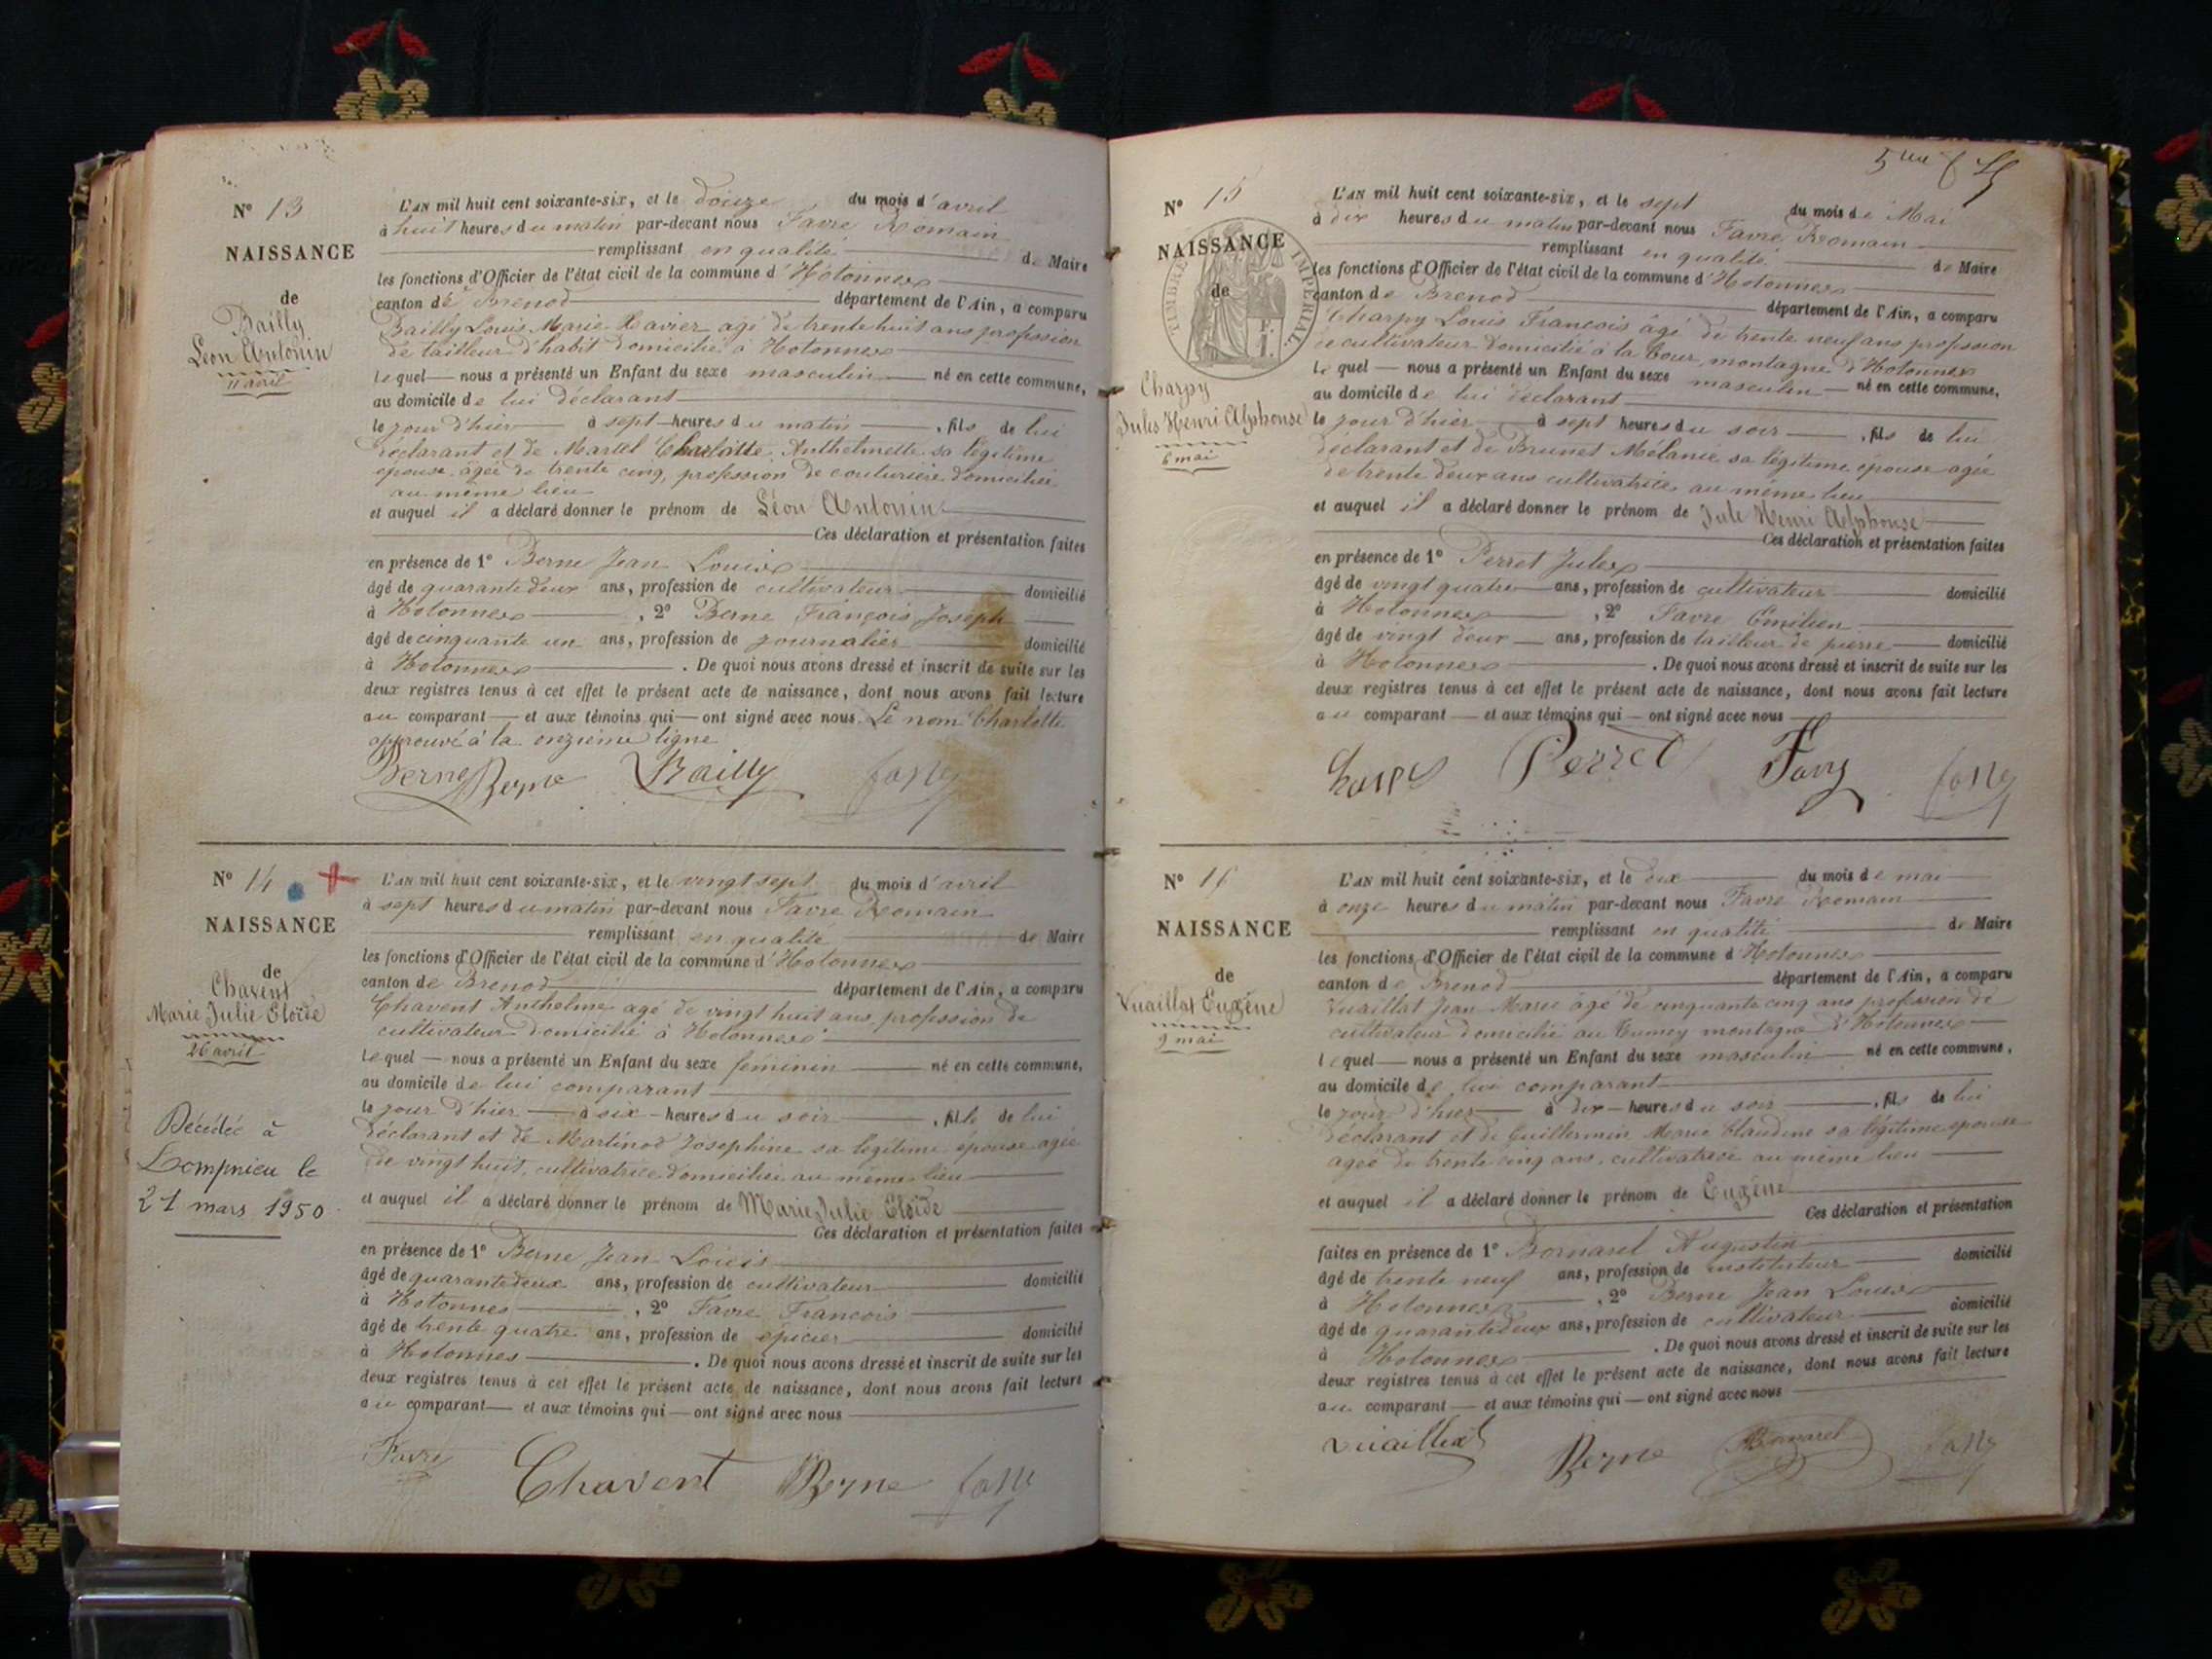 N° 13
NAISSANCE
de
Bailly
Léon Antonin
11 avril
L'AN mil huit cent soixante-six, et le douze du mois d'avril
à huit heures du matin par-devant nous Favre Romain
remplissant en qualité de Maire
les fonctions d'Officier de l'état civil de la commune d'Hotonnes
canton de Brenod département de l'Ain, a comparu
Bailly Louis Marie Xavier agé de trente huit ans profession
de tailleur d'habit domicilié à Hotonnes
lequel nous a présenté un Enfant du sexe masculin né en cette commune,
au domicile de lui déclarant
le jour d'hier à sept heures du matin, fils de lui
déclarant et de Martel Charlotte Anthelmette sa légitime
épouse agée de trente cinq, profession de couturière domiciliée
au même lieu
et auquel il a déclaré donner le prénom de Léon Antonin
Ces déclaration et présentation faites
en présence de 1° Berne Jean Louis
âgé de quarante deux ans, profession de cultivateur domicilié
à Hotonnes, 2° Berne François Joseph
âgé de cinquante un ans, profession de journalier domicilié
à Hotonnes. De quoi nous avons dressé et inscrit de suite sur les
deux registres tenus à cet effet le présent acte de naissance, dont nous avons fait lecture
au comparant et aux témoins qui ont signé avec nous. Le nom Charlotte
approuvé à la onzième ligne
Berne Berne Bailly
N° 14
NAISSANCE
de
Chavent
Marie Julie Eloïde
26 avril
Décédée à
Lompnieu le
21 mars 1950
L'AN mil huit cent soixante-six, et le vingt sept du mois d'avril
à sept heures du matin par-devant nous Favre Romain
remplissant en qualité de Maire
les fonctions d'Officier de l'état civil de la commune d'Hotonnes
canton de Brenod département de l'Ain, a comparu
Chavent Anthelme agé de vingt huit ans profession de
cultivateur domicilié à Hotonnes
lequel nous a présenté un Enfant du sexe féminin né en cette commune,
au domicile de lui comparant
le jour d'hier à six heures du soir, fille de lui
déclarant et de Martinod Josephine sa légitime épouse agée
de vingt huit, cultivatrice domiciliée au même lieu
et auquel il a déclaré donner le prénom de Marie Julie Eloïde
Ces déclaration et présentation faites
en présence de 1° Berne Jean Louis
âgé de quarante deux ans, profession de cultivateur domicilié
à Hotonnes, 2° Favre François
âgé de trente quatre ans, profession de épicier domicilié
à Hotonnes. De quoi nous avons dressé et inscrit de suite sur les
deux registres tenus à cet effet le présent acte de naissance, dont nous avons fait lecture
au comparant et aux témoins qui ont signé avec nous
Favre Chavent Berne
N° 15
NAISSANCE
de
TIMBRE IMPERIAL.
Charpy
Jules Henri Alphonse
6 mai
L'AN mil huit cent soixante-six, et le sept du mois de Mai
à dix heures du matin par-devant nous Favre Romain
remplissant en qualité de Maire
les fonctions d'Officier de l'état civil de la commune d'Hotonnes
canton de Brenod département de l'Ain, a comparu
Charpy Louis François âgé de trente neuf ans profession
de cultivateur domicilié à la Cour, montagne d'Hotonnes
lequel nous a présenté un Enfant du sexe masculin né en cette commune,
au domicile de lui déclarant
le jour d'hier à sept heures du soir, fils de lui
déclarant et de Brunet Mélanie sa légitime épouse agée
de trente deux ans cultivatrice au même lieu
et auquel il a déclaré donner le prénom de Jule Henri Alphonse
Ces déclaration et présentation faites
en présence de 1° Perret Jules
âgé de vingt quatre ans, profession de cultivateur domicilié
à Hotonnes, 2° Favre Emilien
âgé de vingt deux ans, profession de tailleur de pierre domicilié
à Hotonnes. De quoi nous avons dressé et inscrit de suite sur les
deux registres tenus à cet effet le présent acte de naissance, dont nous avons fait lecture
au comparant et aux témoins qui ont signé avec nous
Perret
N° 16
NAISSANCE
de
Vuaillat Eugène
9 mai
L'AN mil huit cent soixante-six, et le dix du mois de mai
à onze heures du matin par-devant nous Favre Romain
remplissant en qualité de Maire
les fonctions d'Officier de l'état civil de la commune d'Hotonnes
canton de Brenod département de l'Ain, a comparu
Vuaillat Jean Marie âgé de cinquante cinq ans profession de
cultivateur domicilié au montagne d'Hotonnes
lequel nous a présenté un Enfant du sexe masculin né en cette commune,
au domicile de lui comparant
le jour d'hier à dix heures du soir, fils de lui
déclarant et de Guillermin Marie Claudine sa légitime épouse
agée de trente cinq ans, cultivatrice au même lieu
et auquel il a déclaré donner le prénom de Eugène
Ces déclaration et présentation
faites en présence de 1° Bornarel Augustin domicilié
âgé de trente neuf ans, profession de instituteur
à Hotonnes, 2° Berne Jean Louis
âgé de quarante deux ans, profession de cultivateur domicilié
à Hotonnes. De quoi nous avons dressé et inscrit de suite sur les
deux registres tenus à cet effet le présent acte de naissance, dont nous avons fait lecture
au comparant et aux témoins qui ont signé avec nous
Vuaillat Berne Bornarel